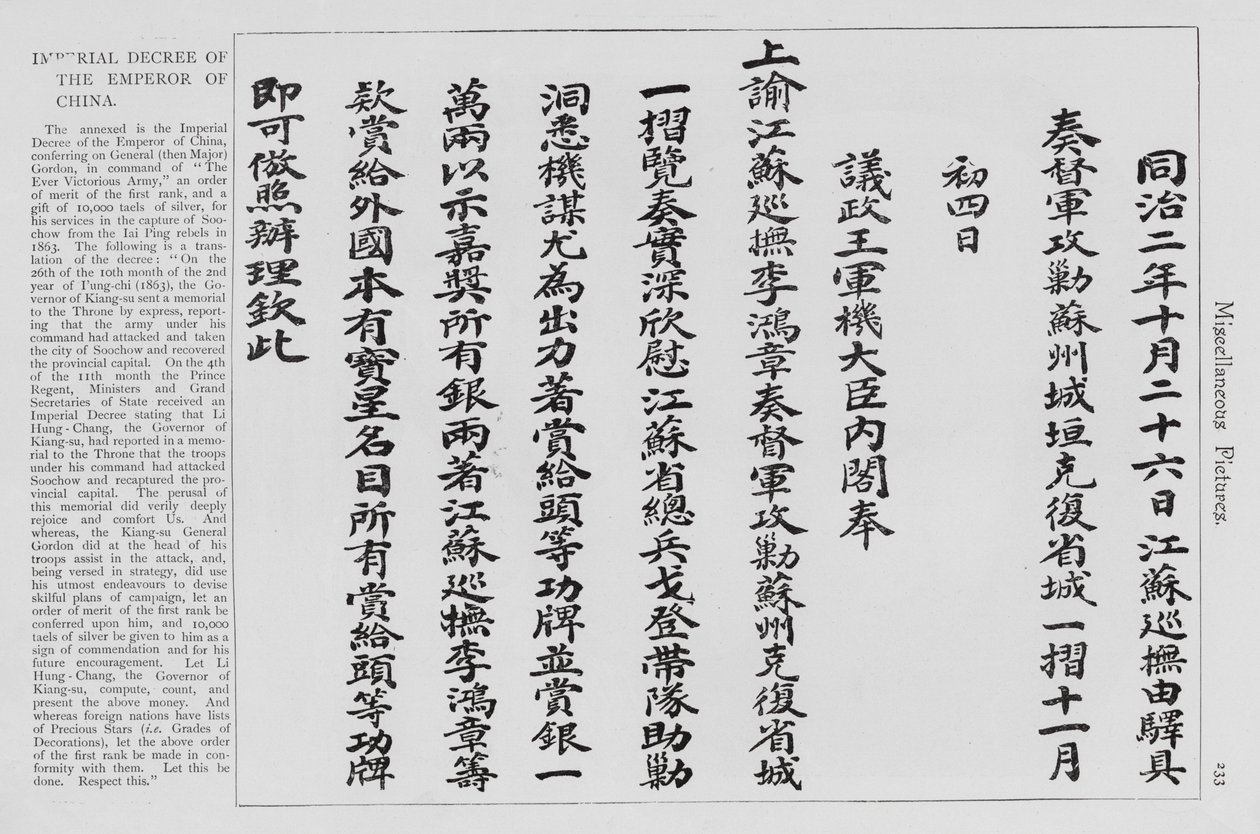 IMPERIAL DECREE OF
THE EMPEROR OF
CHINA.
The annexed is the Imperial
Decree of the Emperor of China,
conferring on General (then Major)
Gordon, in command of "The
Ever Victorious Army," an order
of merit of the first rank, and a
gift of 10,000 taels of silver, for
his services in the capture of Soo-
chow from the Tai Ping rebels in
1863. The following is a trans-
lation of the decree: "On the
26th of the 10th month of the 2nd
year of Tung-chi (1863), the Go-
vernor of Kiang-su sent a memorial
to the Throne by express, report-
ing that the army under his
command had attacked and taken
the city of Soochow and recovered
the provincial capital. On the 4th
of the 11th month the Prince
Regent, Ministers and Grand
Secretaries of State received an
Imperial Decree stating that Li
Hung-Chang, the Governor of
Kiang-su, had reported in a memo-
rial to the Throne that the troops
under his command had attacked
Soochow and recaptured the pro-
vincial capital. The perusal of
this memorial did verily deeply
rejoice and comfort Us. And
whereas, the Kiang-su General
Gordon did at the head of his
troops assist in the attack, and,
being versed in strategy, did use
his utmost endeavours to devise
skilful plans of campaign, let an
order of merit of the first rank be
conferred upon him, and 10,000
taels of silver be given to him as a
sign of commendation and for his
future encouragement. Let Li
Hung-Chang, the Governor of
Kiang-su, compute, count, and
present the above money. And
whereas foreign nations have lists
of Precious Stars (i.e. Grades of
Decorations), let the above order
of the first rank be made in con-
formity with them. Let this be
done. Respect this."
同治二年十月二十六日江蘇巡撫由驛具
奏督軍攻勦蘇州城垣克復省城一摺十一月
初四日
議政王軍機大臣內閣奉
上諭江蘇巡撫李鴻章奏督軍攻勦蘇州克復省城
一摺覽奏實深欣慰江蘇省總兵戈登帶隊助勦
洞悉機謀尤為出力著賞給頭等功牌並賞銀一
萬兩以示嘉獎所有銀兩著江蘇巡撫李鴻章籌
款賞給外國本有寶星名目所有賞給頭等功牌
即可倣照辦理欽此
Miscellaneous Pictures.
233